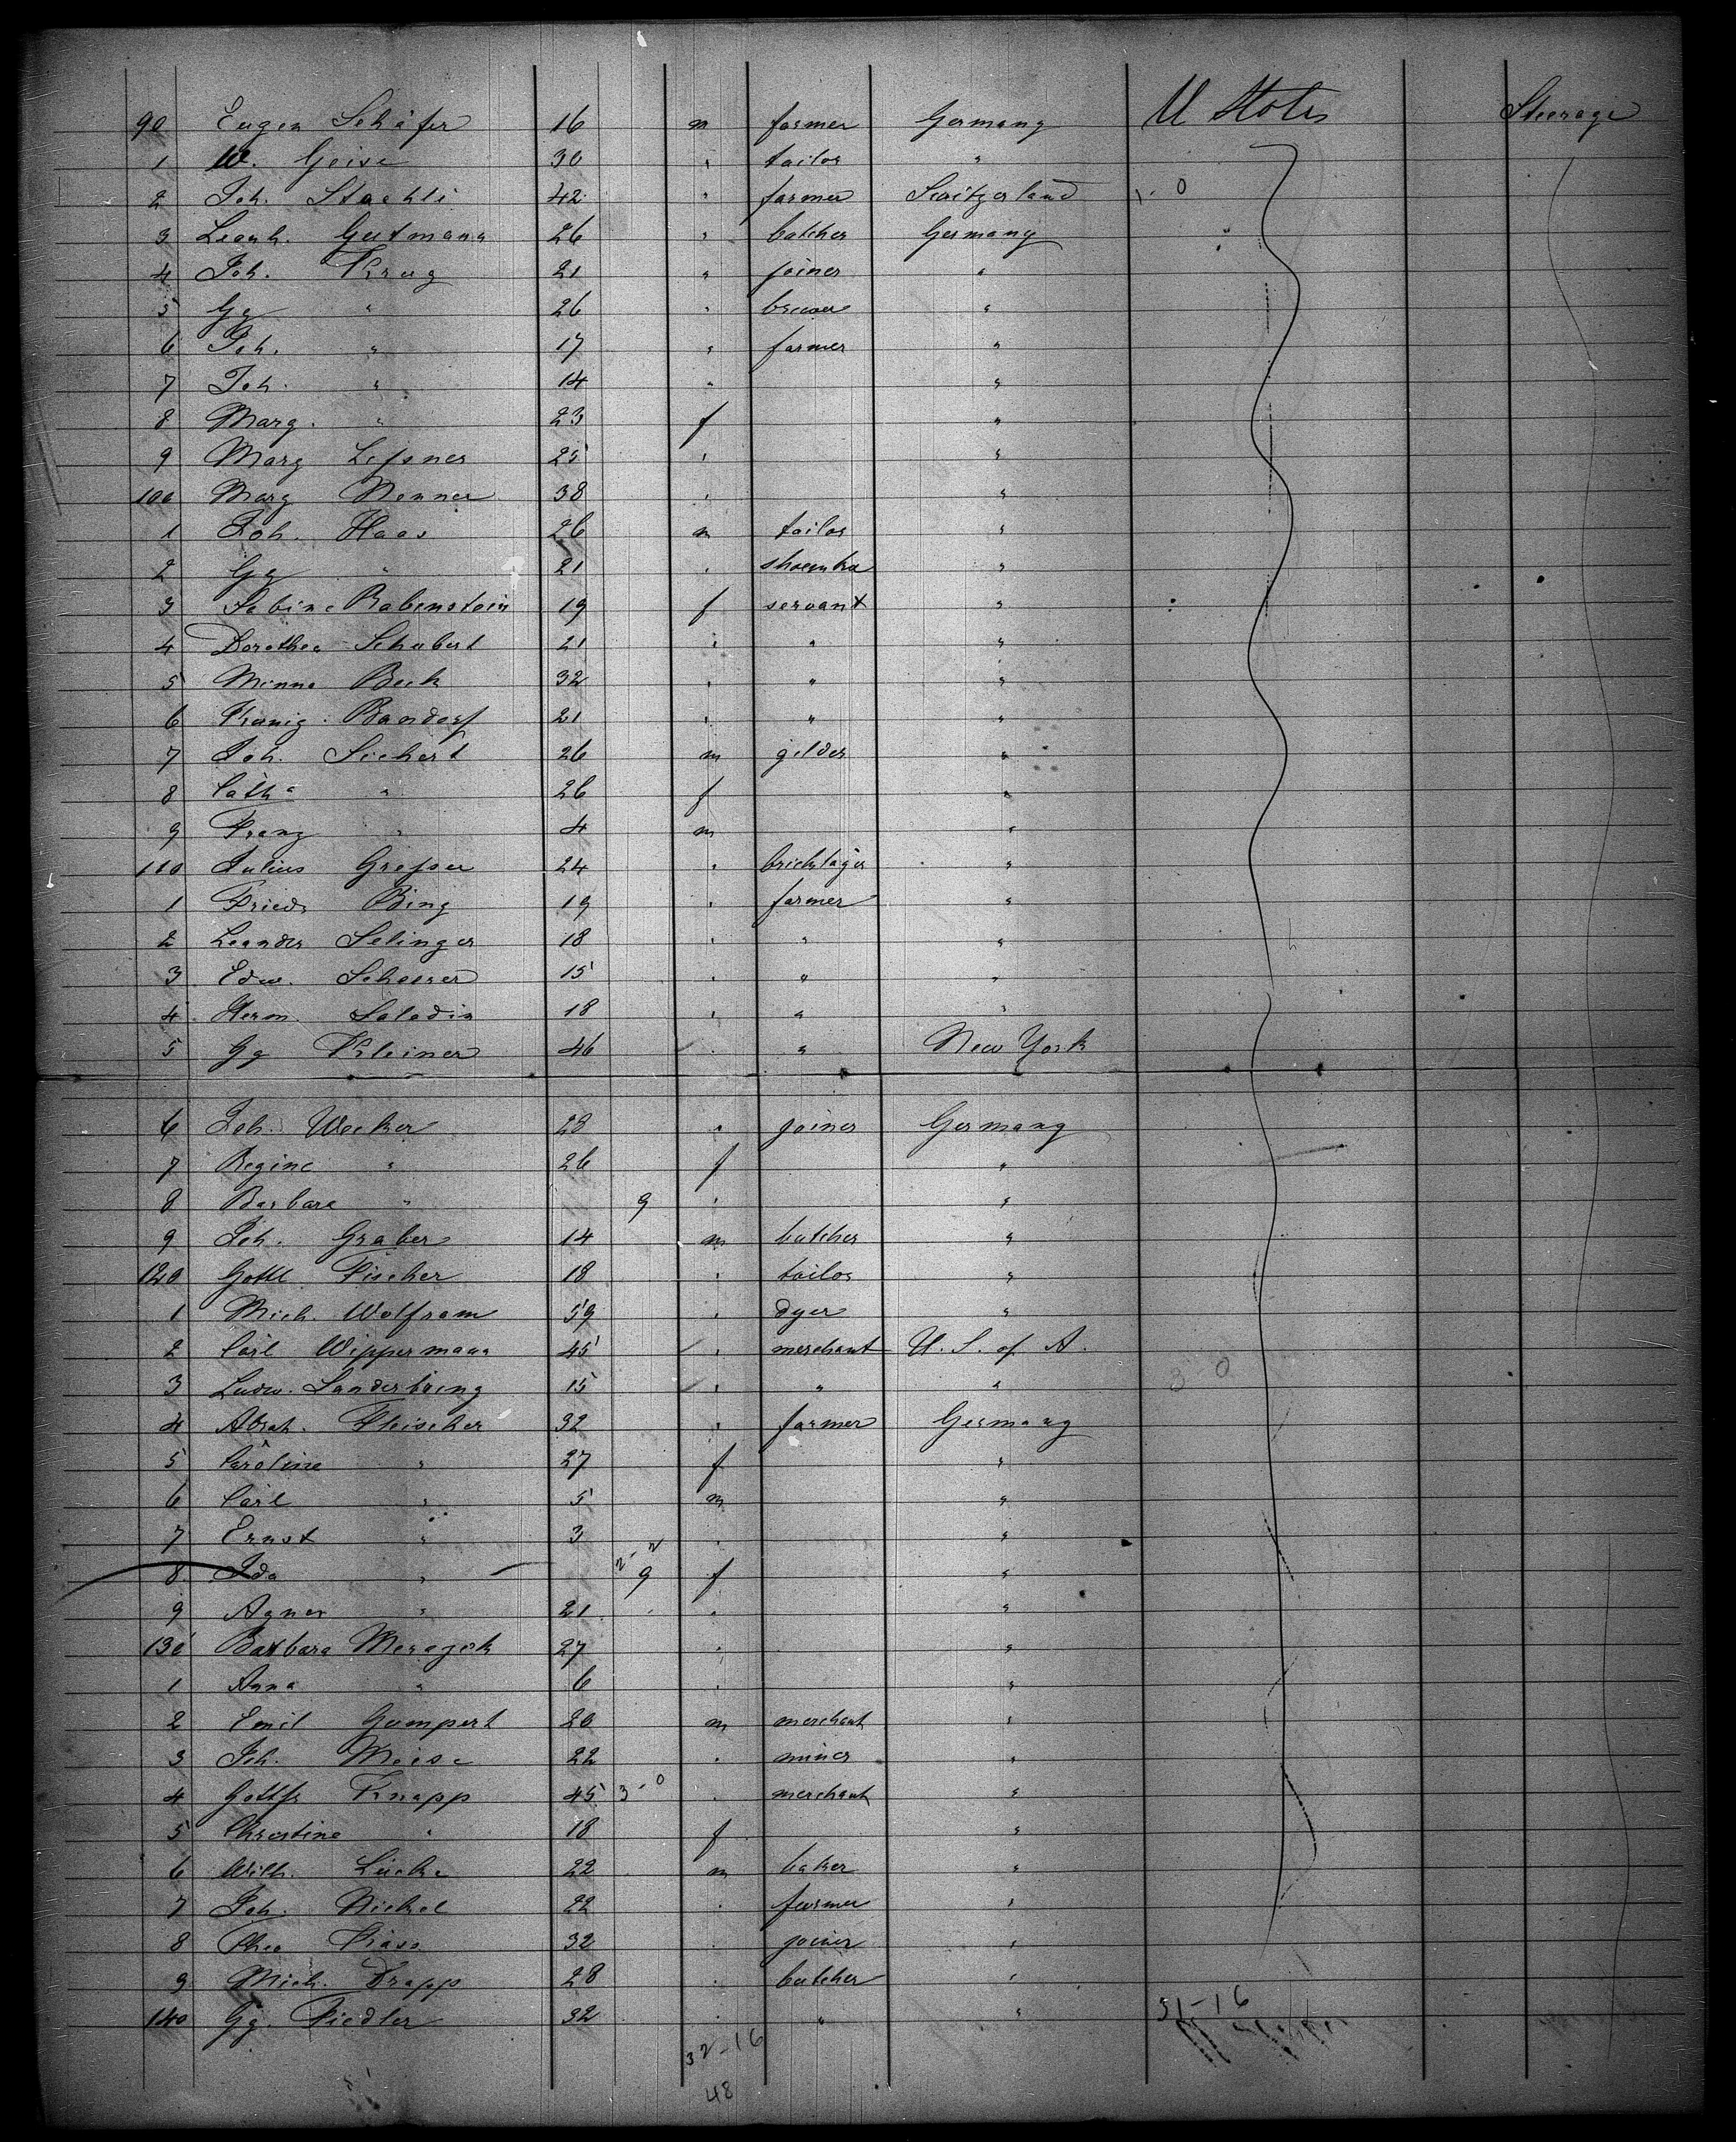 90 Eugen Schäfer 16 m farmer Germany U States Steerage
1 W. Geise 30 " tailor "
2 Joh. Staehli 42 " farmer Switzerland 1-0
3 Leonh. Gutmann 26 " butcher Germany
4 Joh. Krug 21 " joiner "
5 Gg " 26 " brewer "
6 Joh. " 17 " farmer "
7 Joh. " 14 " "
8 Marg. " 23 f "
9 Marg 25 " "
100 Marg Nenner 38 " "
1 Joh. Haas 26 m tailor "
2 Gg " 21 " "
3 Sabine Rabenstein 19 f servant "
4 Dorothea Schubert 21 " " "
5 Minna Beck 32 " " "
6 Bandorf 21 " " "
7 Joh. Siehert 26 m gilder "
8 Catha " 26 f "
9 Franz " 4 m "
110 Julius Gresser 24 " bricklayer "
1 Friedr Bing 19 " farmer "
2 Leander Selinger 18 " " "
3 Edw. Scherrer 15 " " "
4 Herm. Saladin 18 " " "
5 Gg Kleiner 46 " " New York
6 Joh. Wecker 28 " joiner Germany
7 Regine " 26 f "
8 Barbara " 9 " "
9 Joh. Graber 14 m butcher "
120 Gottl Fischer 18 " tailor "
1 Mich. Wolfram 59 " dyer "
2 Carl Wippermann 45 " merchant U. S. of A.
3 Ludw. 15 " " " 3-0
4 Abrah. Fleischer 32 " farmer Germany
5 Caroline " 27 f "
6 Carl " 5 m "
7 Ernst " 3 " "
8 Ida " 9 f "
9 Agnes " 21 " "
130 Barbara 27 " "
1 Anna " 6 " "
2 Emil Gumpert 20 m merchant "
3 Joh. Weise 22 " miner "
4 Gottfr Knapp 45 3-0 " merchant "
5 Christine " 18 f "
6 Wilh. Lücke 22 m baker "
7 Joh. Nickel 22 " farmer "
8 Theo 32 " joiner "
9 Mich. Trapp 28 " butcher "
140 Gg. Fiedler 32 " " " 31-16
32-16
48